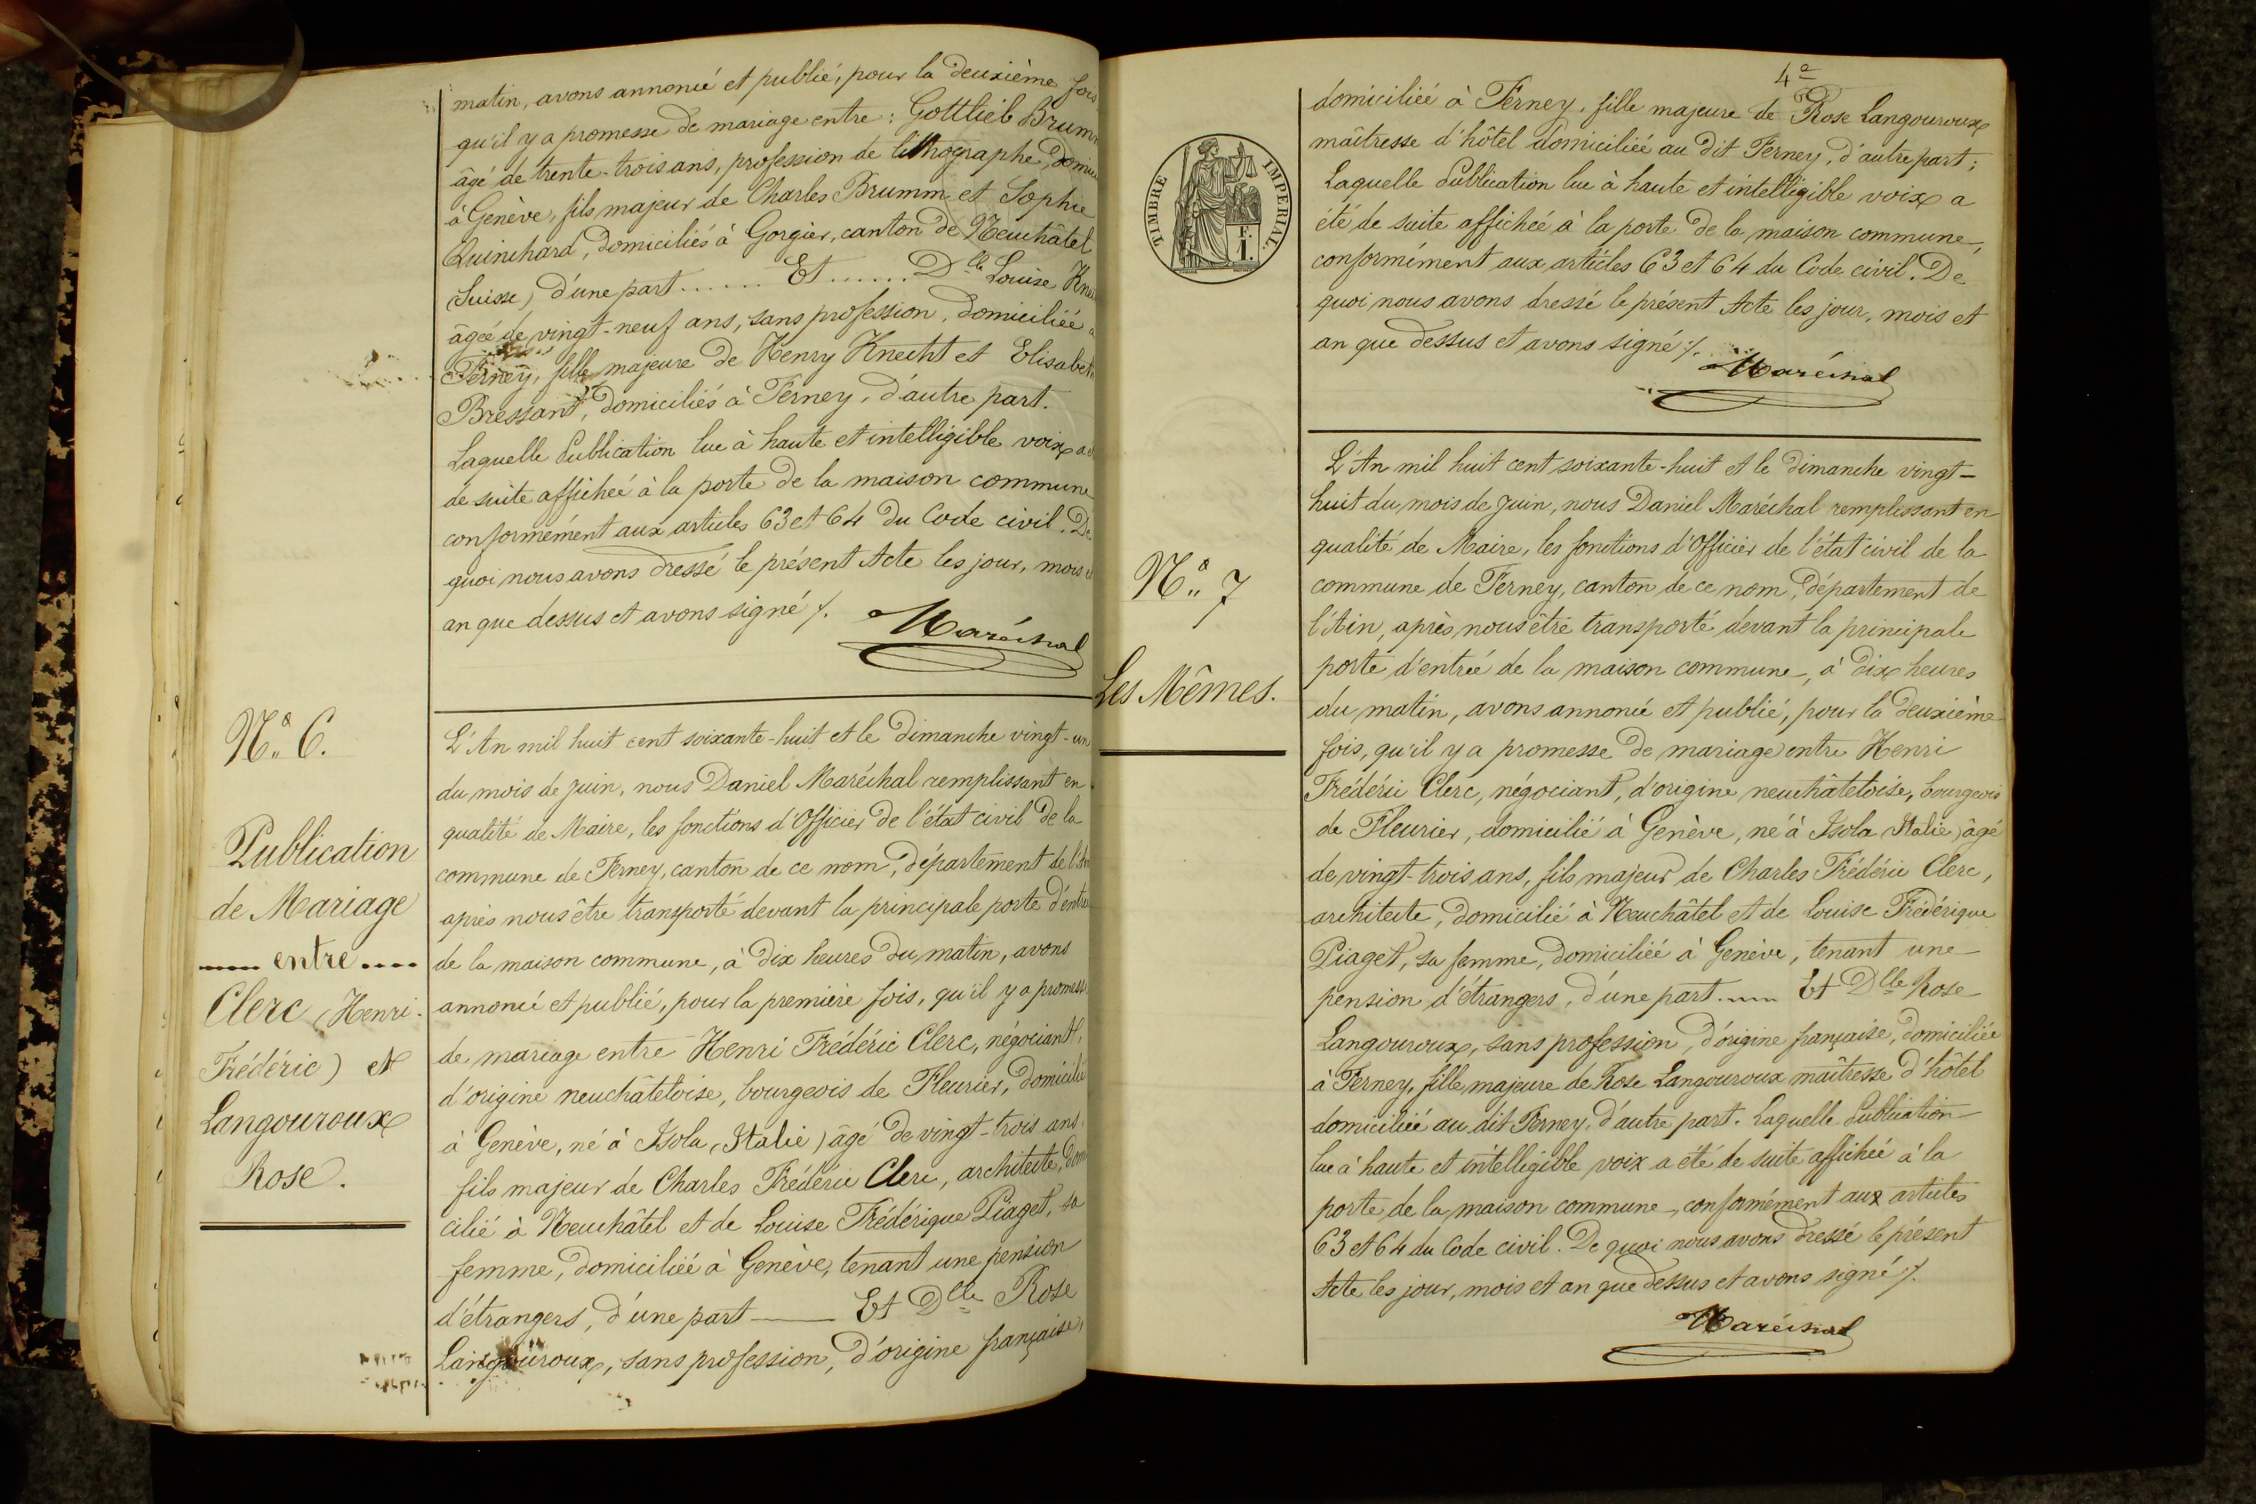 matin, avons annoncé et publié, pour la deuxième fois
qu'il y a promesse de mariage entre : Gottlieb Brumm
âgé de trente-trois ans, profession de lithographe, domici
à Genève, fils majeur de Charles Brumm et Sophie
Quinchard, domiciliés à Gorgier, canton de Neuchâtel
(Suisse) d'une part ...... Et ...... Dlle Louise
âgée de vingt-neuf ans, sans profession, domiciliée à
Ferney, fille majeure de Henry Knecht et Elisabeth
Bressant, domiciliés à Ferney, d'autre part.
Laquelle Publication lue à haute et intelligible voix a
de suite affichée à la porte de la maison commune
conformément aux articles 63 et 64 du Code civil. De
quoi nous avons dressé le présent Acte les jour, mois et
an que dessus et avons signé /.
Maréchal
No 6.
Publication
de Mariage
---- entre ----
Clerc (Henri-
Frédéric) et
Langouroux
Rose.
L'An mil huit cent soixante-huit et le dimanche vingt-un
du mois de Juin, nous Daniel Maréchal remplissant en
qualité de Maire, les fonctions d'Officier de l'état civil de la
commune de Ferney, canton de ce nom, département de l'Ain
après nous être transporté devant la principale porte d'entrée
de la maison commune, à dix heures du matin, avons
annoncé et publié, pour la première fois, qu'il y a promesse
de mariage entre Henri Frédéric Clerc, négociant,
d'origine neuchâteloise, bourgeois de Fleurier, domicilié
à Genève, né à Isola (Italie) âgé de vingt-trois ans,
fils majeur de Charles Frédéric Clerc, architecte, domi
cilié à Neuchâtel et de Louise Frédérique Piaget, sa
femme, domiciliée à Genève, tenant une pension
d'étrangers, d'une part —— Et Dlle Rose
Langouroux, sans profession, d'origine française,
4e
TIMBRE IMPERIAL.
1 F.
domiciliée à Ferney, fille majeure de Rose Langouroux
maîtresse d'hôtel domiciliée au dit Ferney, d'autre part;
Laquelle Publication lue à haute et intelligible voix a
été de suite affichée à la porte de la maison commune,
conformément aux articles 63 et 64 du Code civil. De
quoi nous avons dressé le présent Acte les jour, mois et
an que dessus et avons signé /.
Maréchal
No 7
Les Mêmes.
L'An mil huit cent soixante-huit et le dimanche vingt-
huit du mois de Juin, nous Daniel Maréchal remplissant en
qualité de Maire, les fonctions d'Officier de l'état civil de la
commune de Ferney, canton de ce nom, département de
l'Ain, après nous être transporté devant la principale
porte d'entrée de la maison commune, à dix heures
du matin, avons annoncé et publié, pour la deuxième
fois, qu'il y a promesse de mariage entre Henri
Frédéric Clerc, négociant, d'origine neuchâteloise, bourgeois
de Fleurier, domicilié à Genève, né à Isola (Italie) âgé
de vingt-trois ans, fils majeur de Charles Frédéric Clerc,
architecte, domicilié à Neuchâtel et de Louise Frédérique
Piaget, sa femme, domiciliée à Genève, tenant une
pension d'étrangers, d'une part. ---- Et Dlle Rose
Langouroux, sans profession, d'origine française, domiciliée
à Ferney, fille majeure de Rose Langouroux maîtresse d'hôtel
domiciliée au dit Ferney, d'autre part. Laquelle Publication
lue à haute et intelligible voix a été de suite affichée à la
porte de la maison commune, conformément aux articles
63 et 64 du Code civil. De quoi nous avons dressé le présent
Acte les jour, mois et an que dessus et avons signé /.
Maréchal